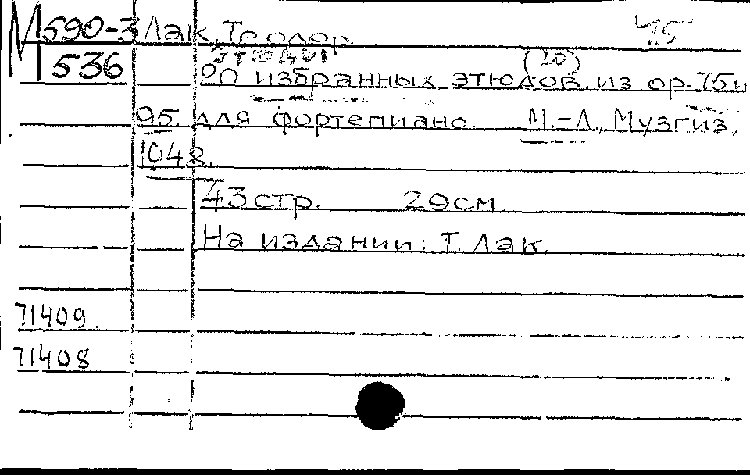 М 590-3 Лак, Теодор 45
536 Этюды (20)
20 избранных этюдов из ор. 75 и
95. для фортепиано М.-Л., Музгиз,
1948.
43 стр. 29 см
На издании: Т. Лак.
71409
71408